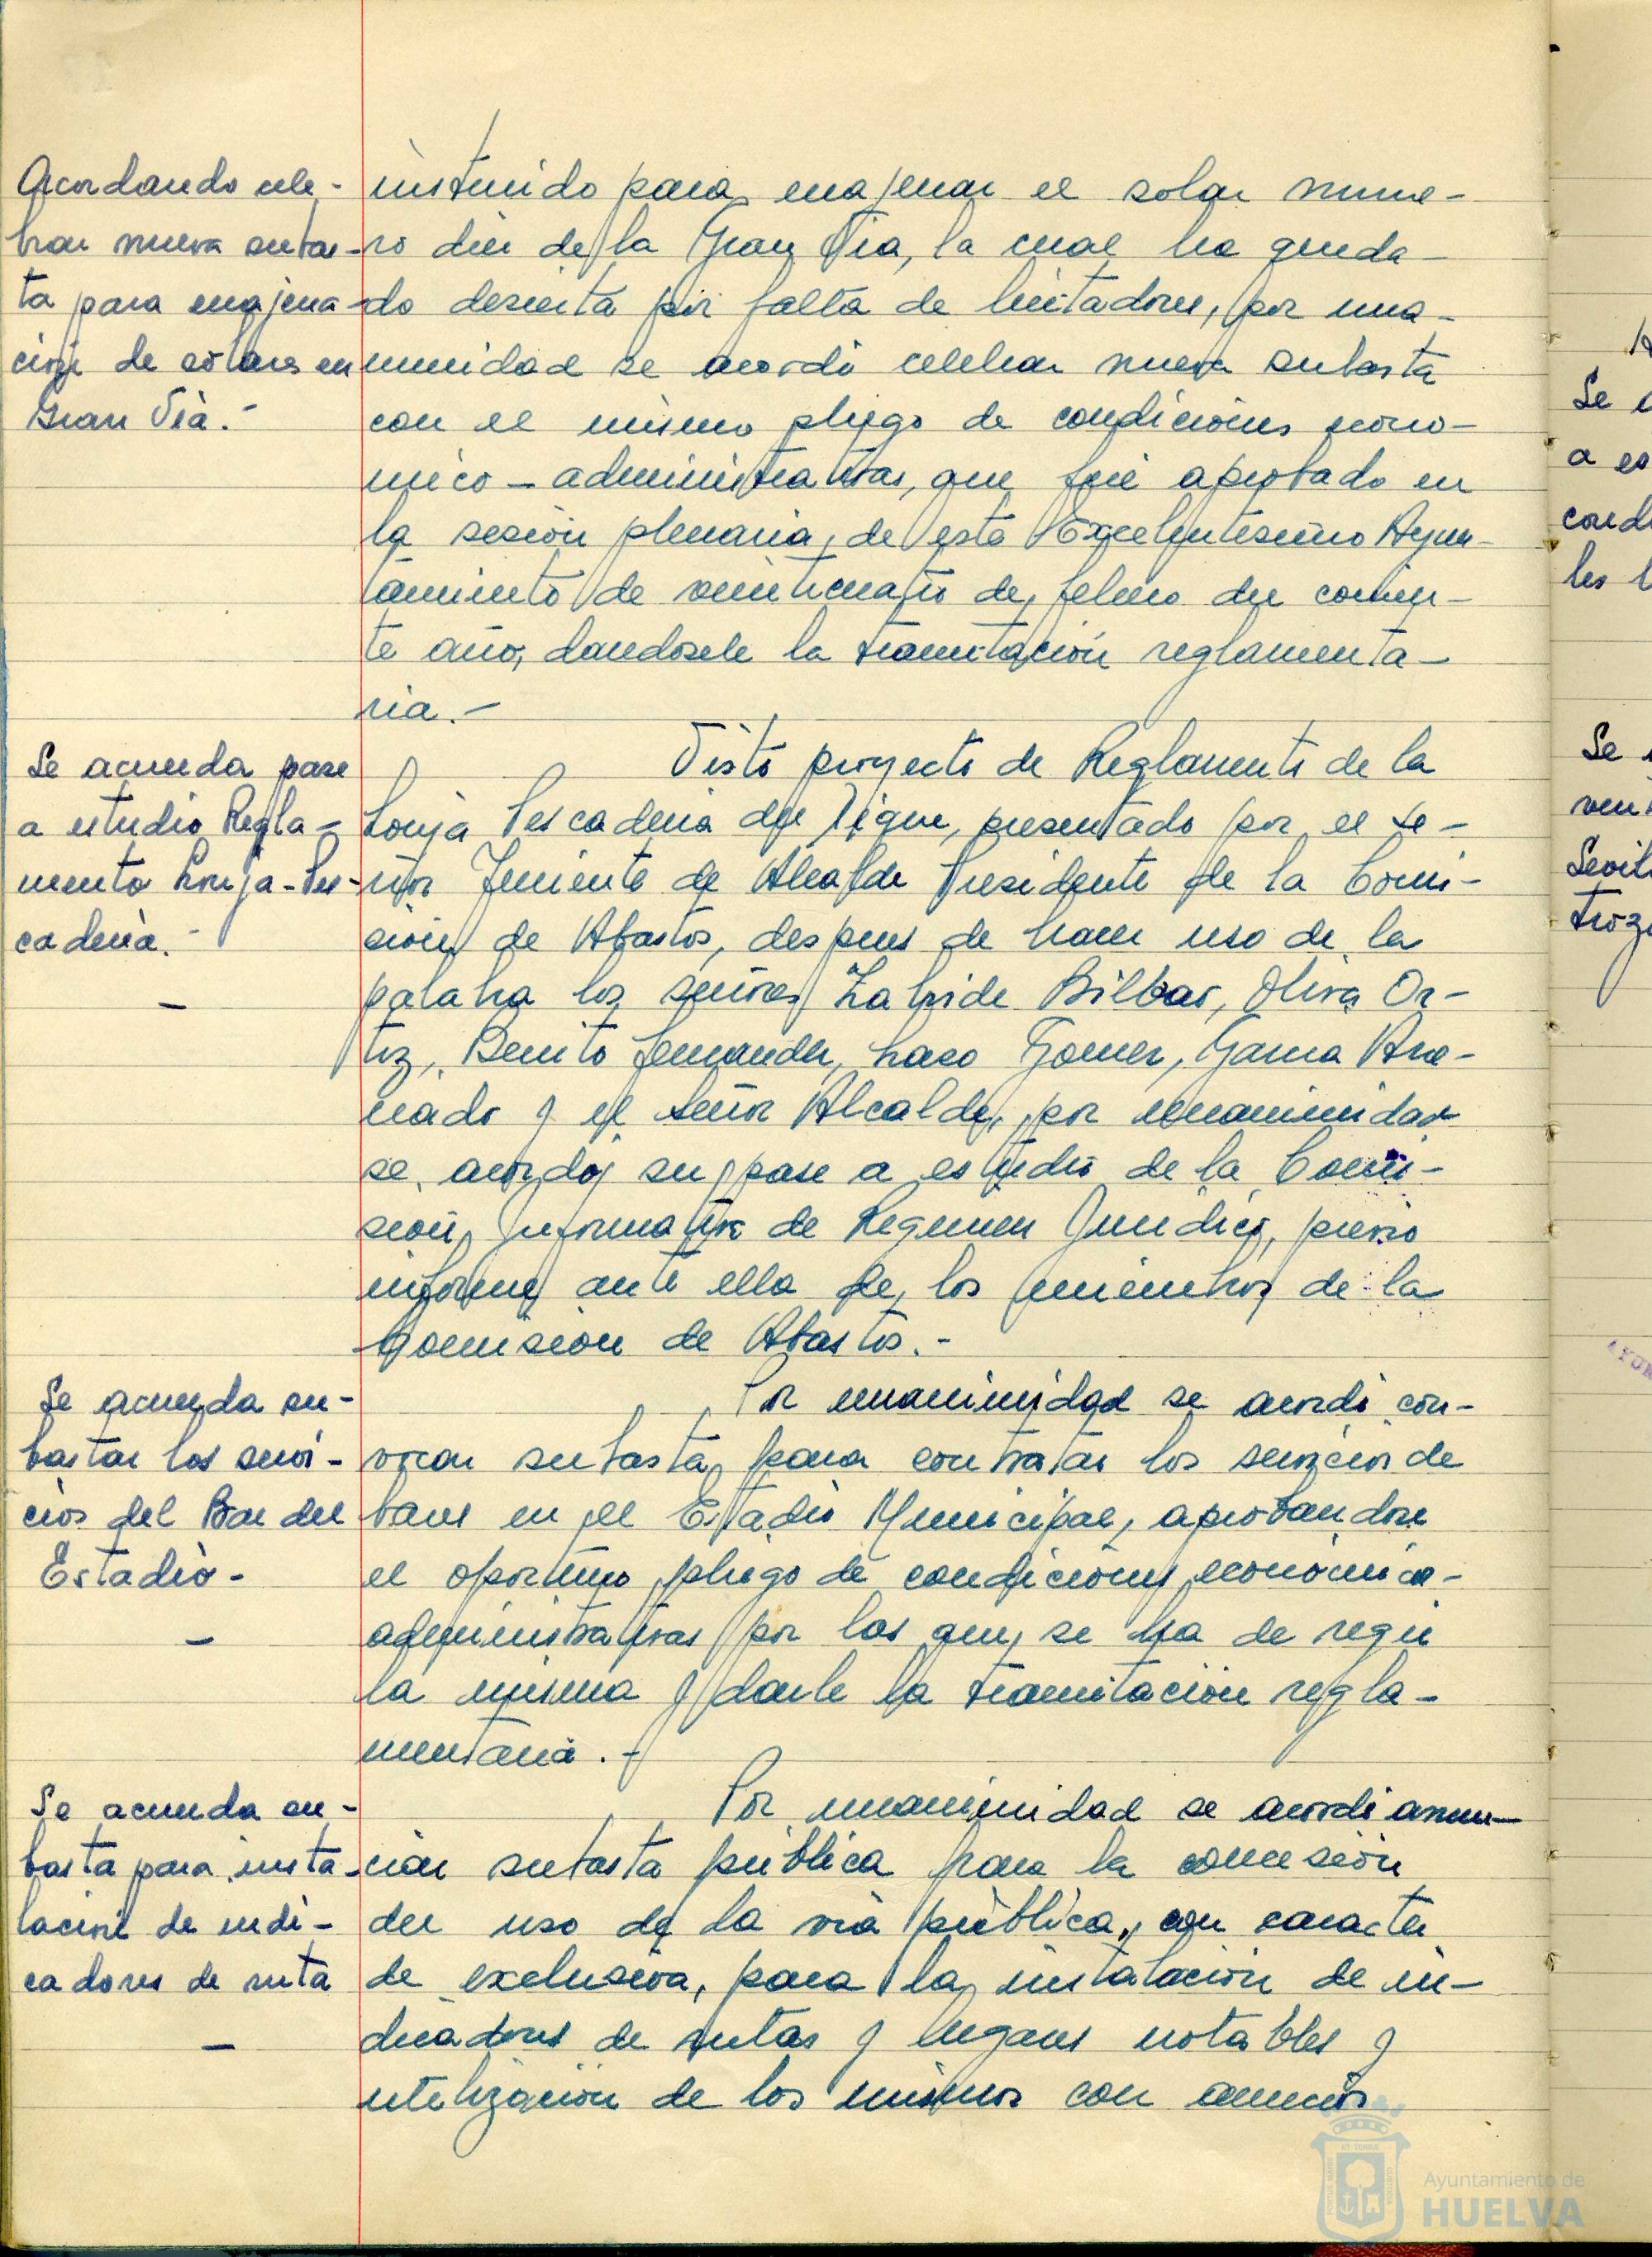 Acordando cele-
brar nueva subas-
ta para enajena-
ción de solares en
Gran Vía.-
instruido para enajenar el solar núme-
ro diez de la Gran Vía, la cual ha queda-
do desierta por falta de licitadores, por una-
nimidad se acordó celebrar nueva subasta
con el mismo pliego de condiciones econo-
mico-administrativas, que fué aprobado en
la sesión plenaria, de este Excelentísimo Ayun-
tamiento de veinticuatro de febrero del corrien-
te año, dandosele la tramitación reglamenta-
ria.-
Se acuerda pase
a estudio Regla-
mento Lonja-Pes-
cadería.-
Visto proyecto de Reglamento de la
Lonja Pescadería del Dique, presentado por el Se-
ñor Teniente de Alcalde Presidente de la Comi-
sión de Abastos, despues de hacer uso de la
palabra los señores Zalvide Bilbao, Oliva Or-
tiz, Benito Fernandez, Laso Gomez, Garcia
y el señor Alcalde, por unanimidad
se acordó su pase a estudio de la Comi-
sión Informativa de Regimen Juridico, previo
informe ante ella de los miembros de la
Comisión de Abastos.-
Se acuerda su-
bastar los servi-
cios del Bar del
Estadio-
Por unanimidad se acordó con-
vocar subasta para contratar los servicios de
bares en el Estadio Municipal, aprobandose
el oportuno pliego de condiciones economico-
administrativas por las que se ha de regir
la misma y darle la tramitación regla-
mentaria.-
Se acuerda su-
basta para insta-
lación de indi-
cadores de ruta
Por unanimidad se acordó anun-
ciar subasta pública para la concesión
del uso de la vía pública, con caracter
de exclusiva, para la instalación de in-
dicadores de rutas y lugares notables y
utilización de los mismos con anuncios
Se
a es
cond
les l
Se
ven
Sevil
troz
Ayuntamiento de
HUELVA